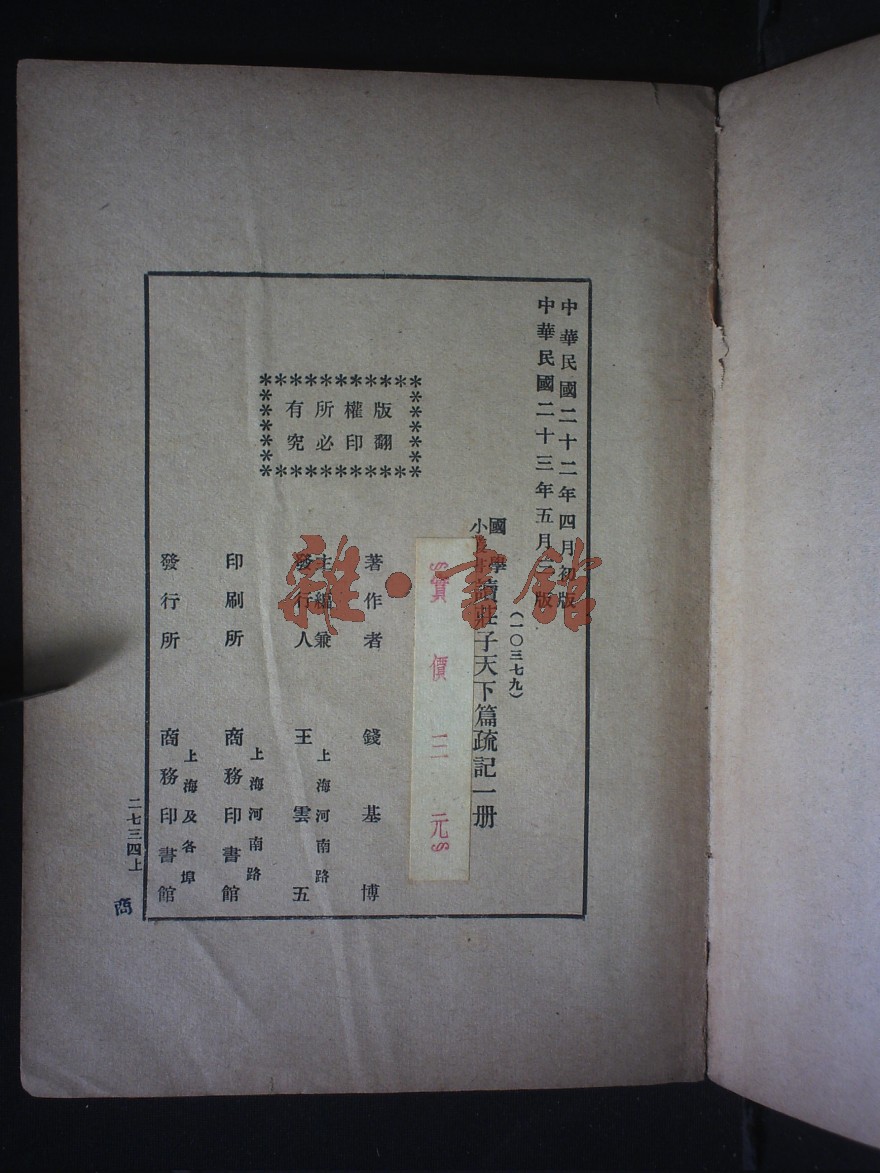 中華民國二十二年四月初版
中華民國二十三年五月 版
(一〇三七九)
國學
小 讀莊子天下篇疏記一册
實價三元
版權所有
翻印必究
著作者 錢基博
主編兼
發行人
上海河南路
王雲五
印刷所
上海河南路
商務印書館
發行所
上海及各埠
商務印書館
二七三四上
商
雜·書館